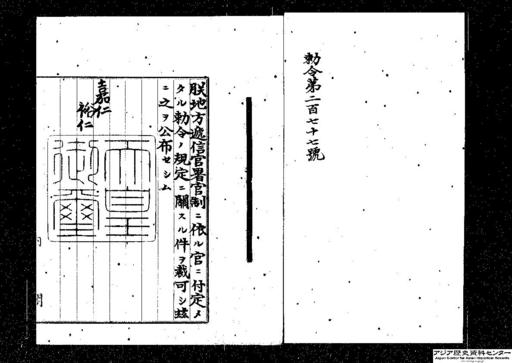 勅令第二百七十七號
朕地方遞信官署官制ニ依ル官ニ付定メ
タル勅令ノ規定ニ關スル件ヲ裁可シ玆
ニ之ヲ公布セシム
嘉仁
裕仁
天皇
御璽
アジア歴史資料センター
Japan Center for Asian Historical Records